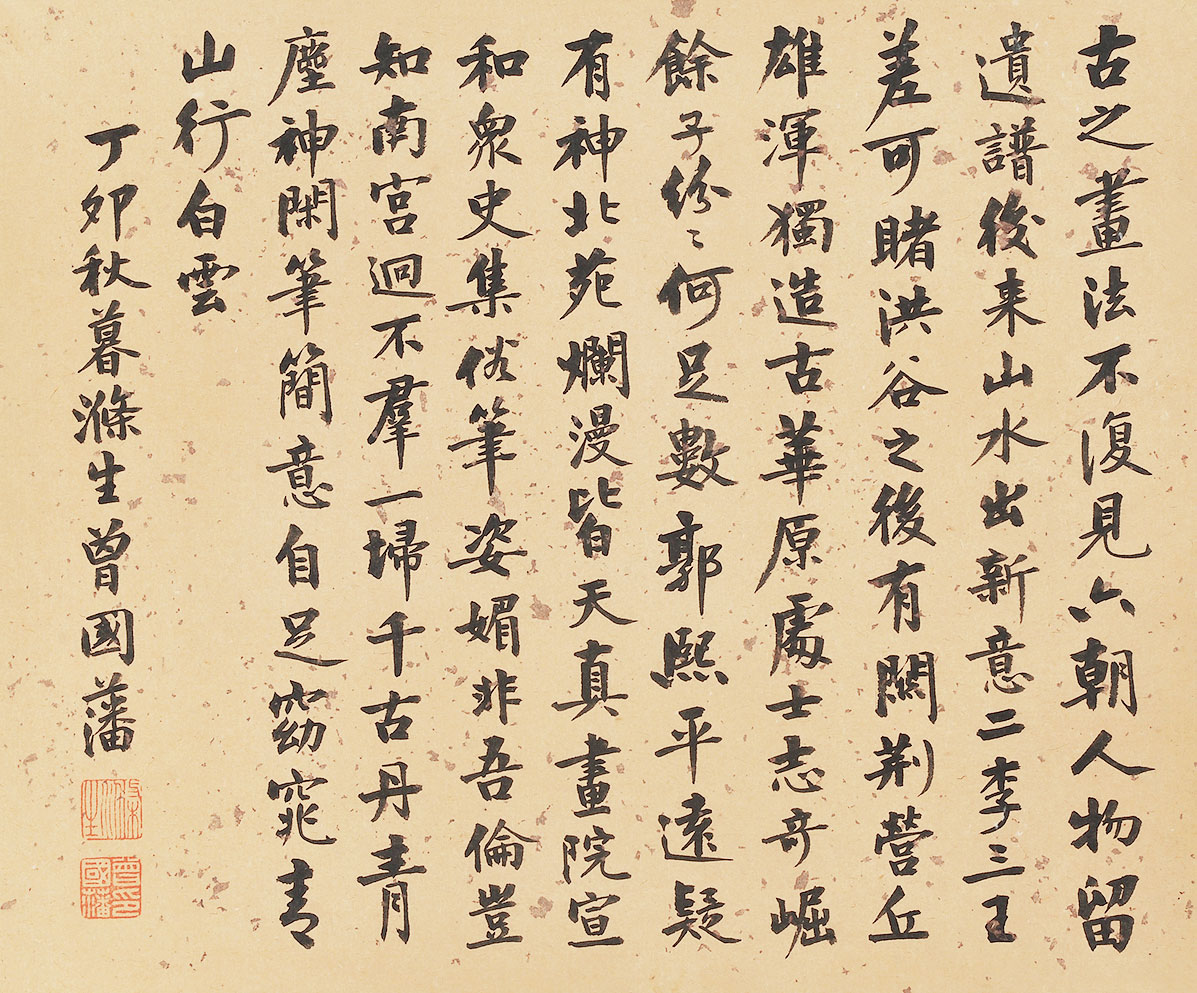 古之畫法不復見六朝人物留
遺譜後来山水出新意二李三王
差可睹洪谷之後有關荆營丘
雄渾獨造古華原處士志奇崛
餘子紛〻何足數郭熙平遠疑
有神北苑爛漫皆天真畫院宣
和衆史集俗筆姿媚非吾倫豈
知南宮迥不羣一埽千古丹青
塵神閑筆簡意自足窈窕青
山行白雲
丁卯秋暮滌生曾國藩
滌生
曾國藩印